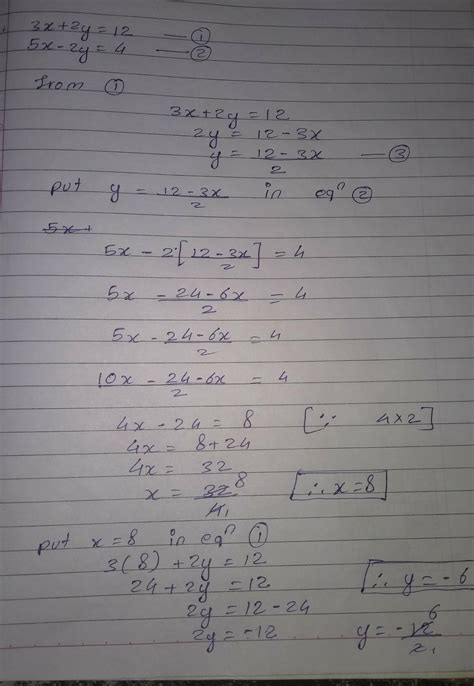 3x+2y=12 — ①
5x-2y=4 — ②
from ①
3x+2y=12
2y = 12-3x
y = 12-3x — ③
2
put y = 12-3x in eqⁿ ②
2
5x+
5x - 2[12-3x] = 4
2
5x - 24-6x = 4
2
5x - 24-6x = 4
2
10x - 24-6x = 4
2
4x - 24 = 8 [∵ 4×2]
4x = 8+24
4x = 32
x = 32 8 ∴ x=8
4 1
put x=8 in eqⁿ ①
3(8) + 2y = 12
24 + 2y = 12 ∴ y = -6
2y = 12-24
2y = -12 y = -12 6
2 1